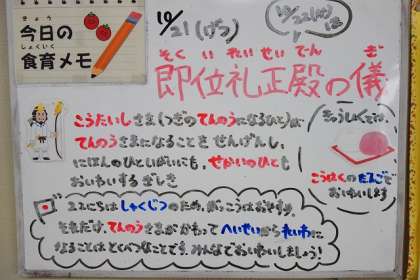 きょう
今日の
しょくいく
食育メモ
10/21(げつ)
10/22(か)は
そくいれいせいでんのぎ
即位礼正殿の儀
こうたいしさま(つぎのてんのうになるひと)は、
てんのうさまになることをせんげんし、
にほんのひとはいいにも、せかいのひとも
おいわいするぎしき
きゅうしょくでは、
こうはくのだんごで
おいわいします
22にちはしゃくじつのため、がっこうはおやすみ。
それだけ、てんのうさまがかわってへいせいかられいわに
なることはとくべつなことです。みんなでおいわいしましょう!